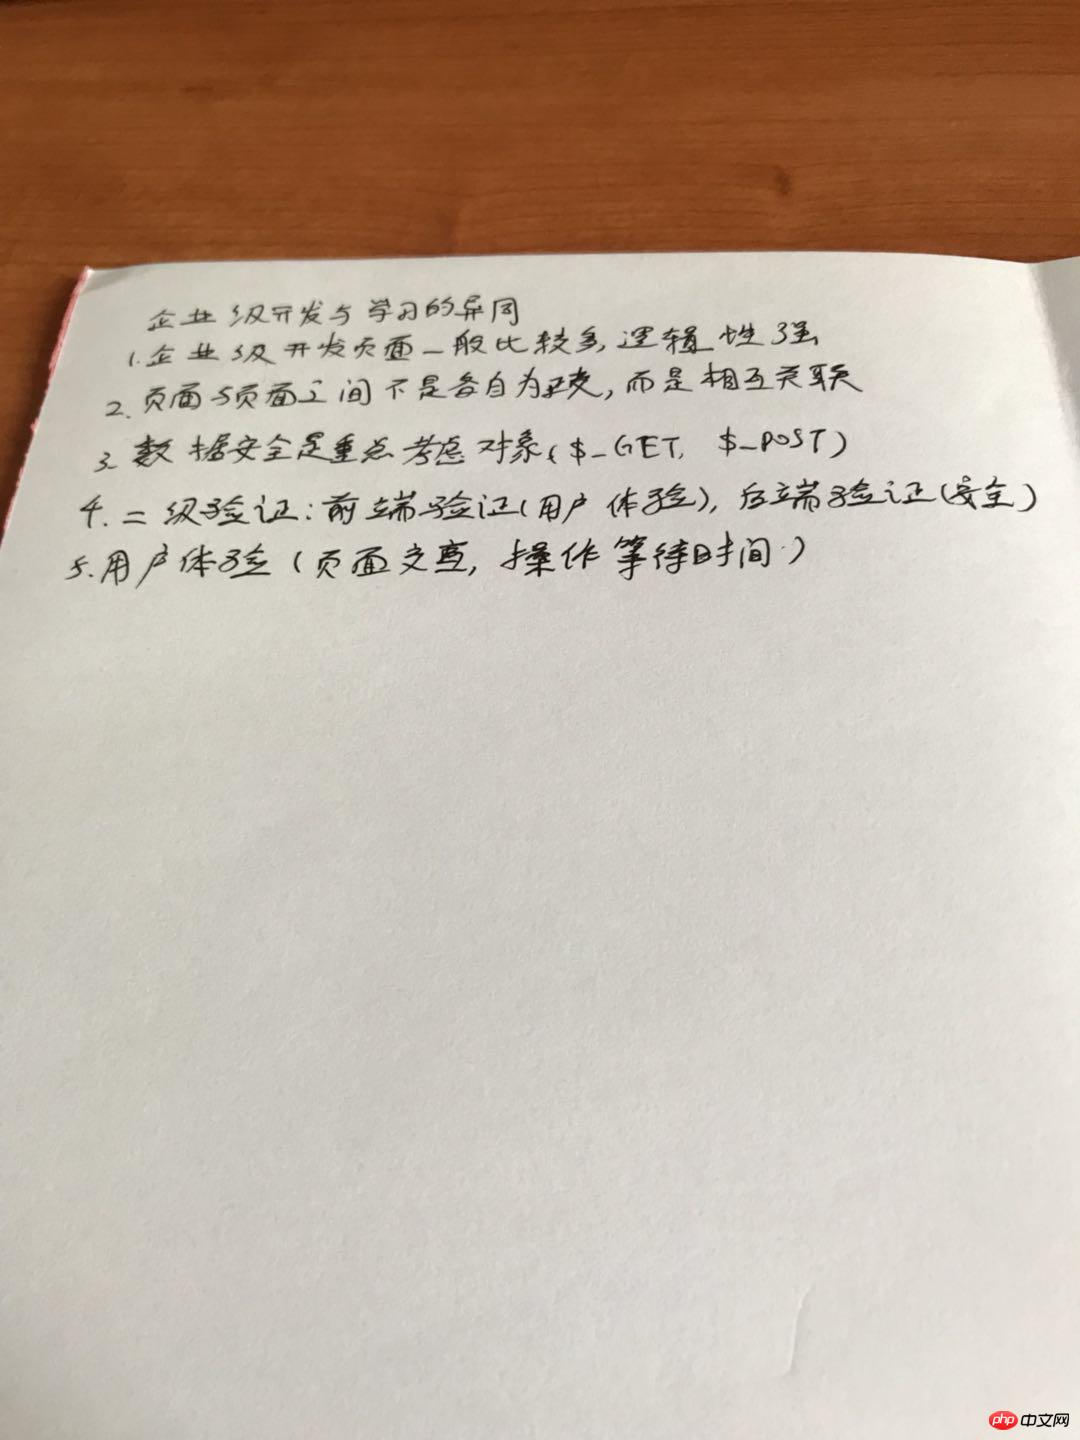 企业级开发与学习的异同
1.企业级开发页面一般比较多,逻辑性强
2.页面与页面之间不是各自为政,而是相互关联
3.数据安全是重点考虑对象($_GET, $_POST)
4.二级验证:前端验证(用户体验),后端验证(安全)
5.用户体验(页面交互,操作等待时间.)
php中文网